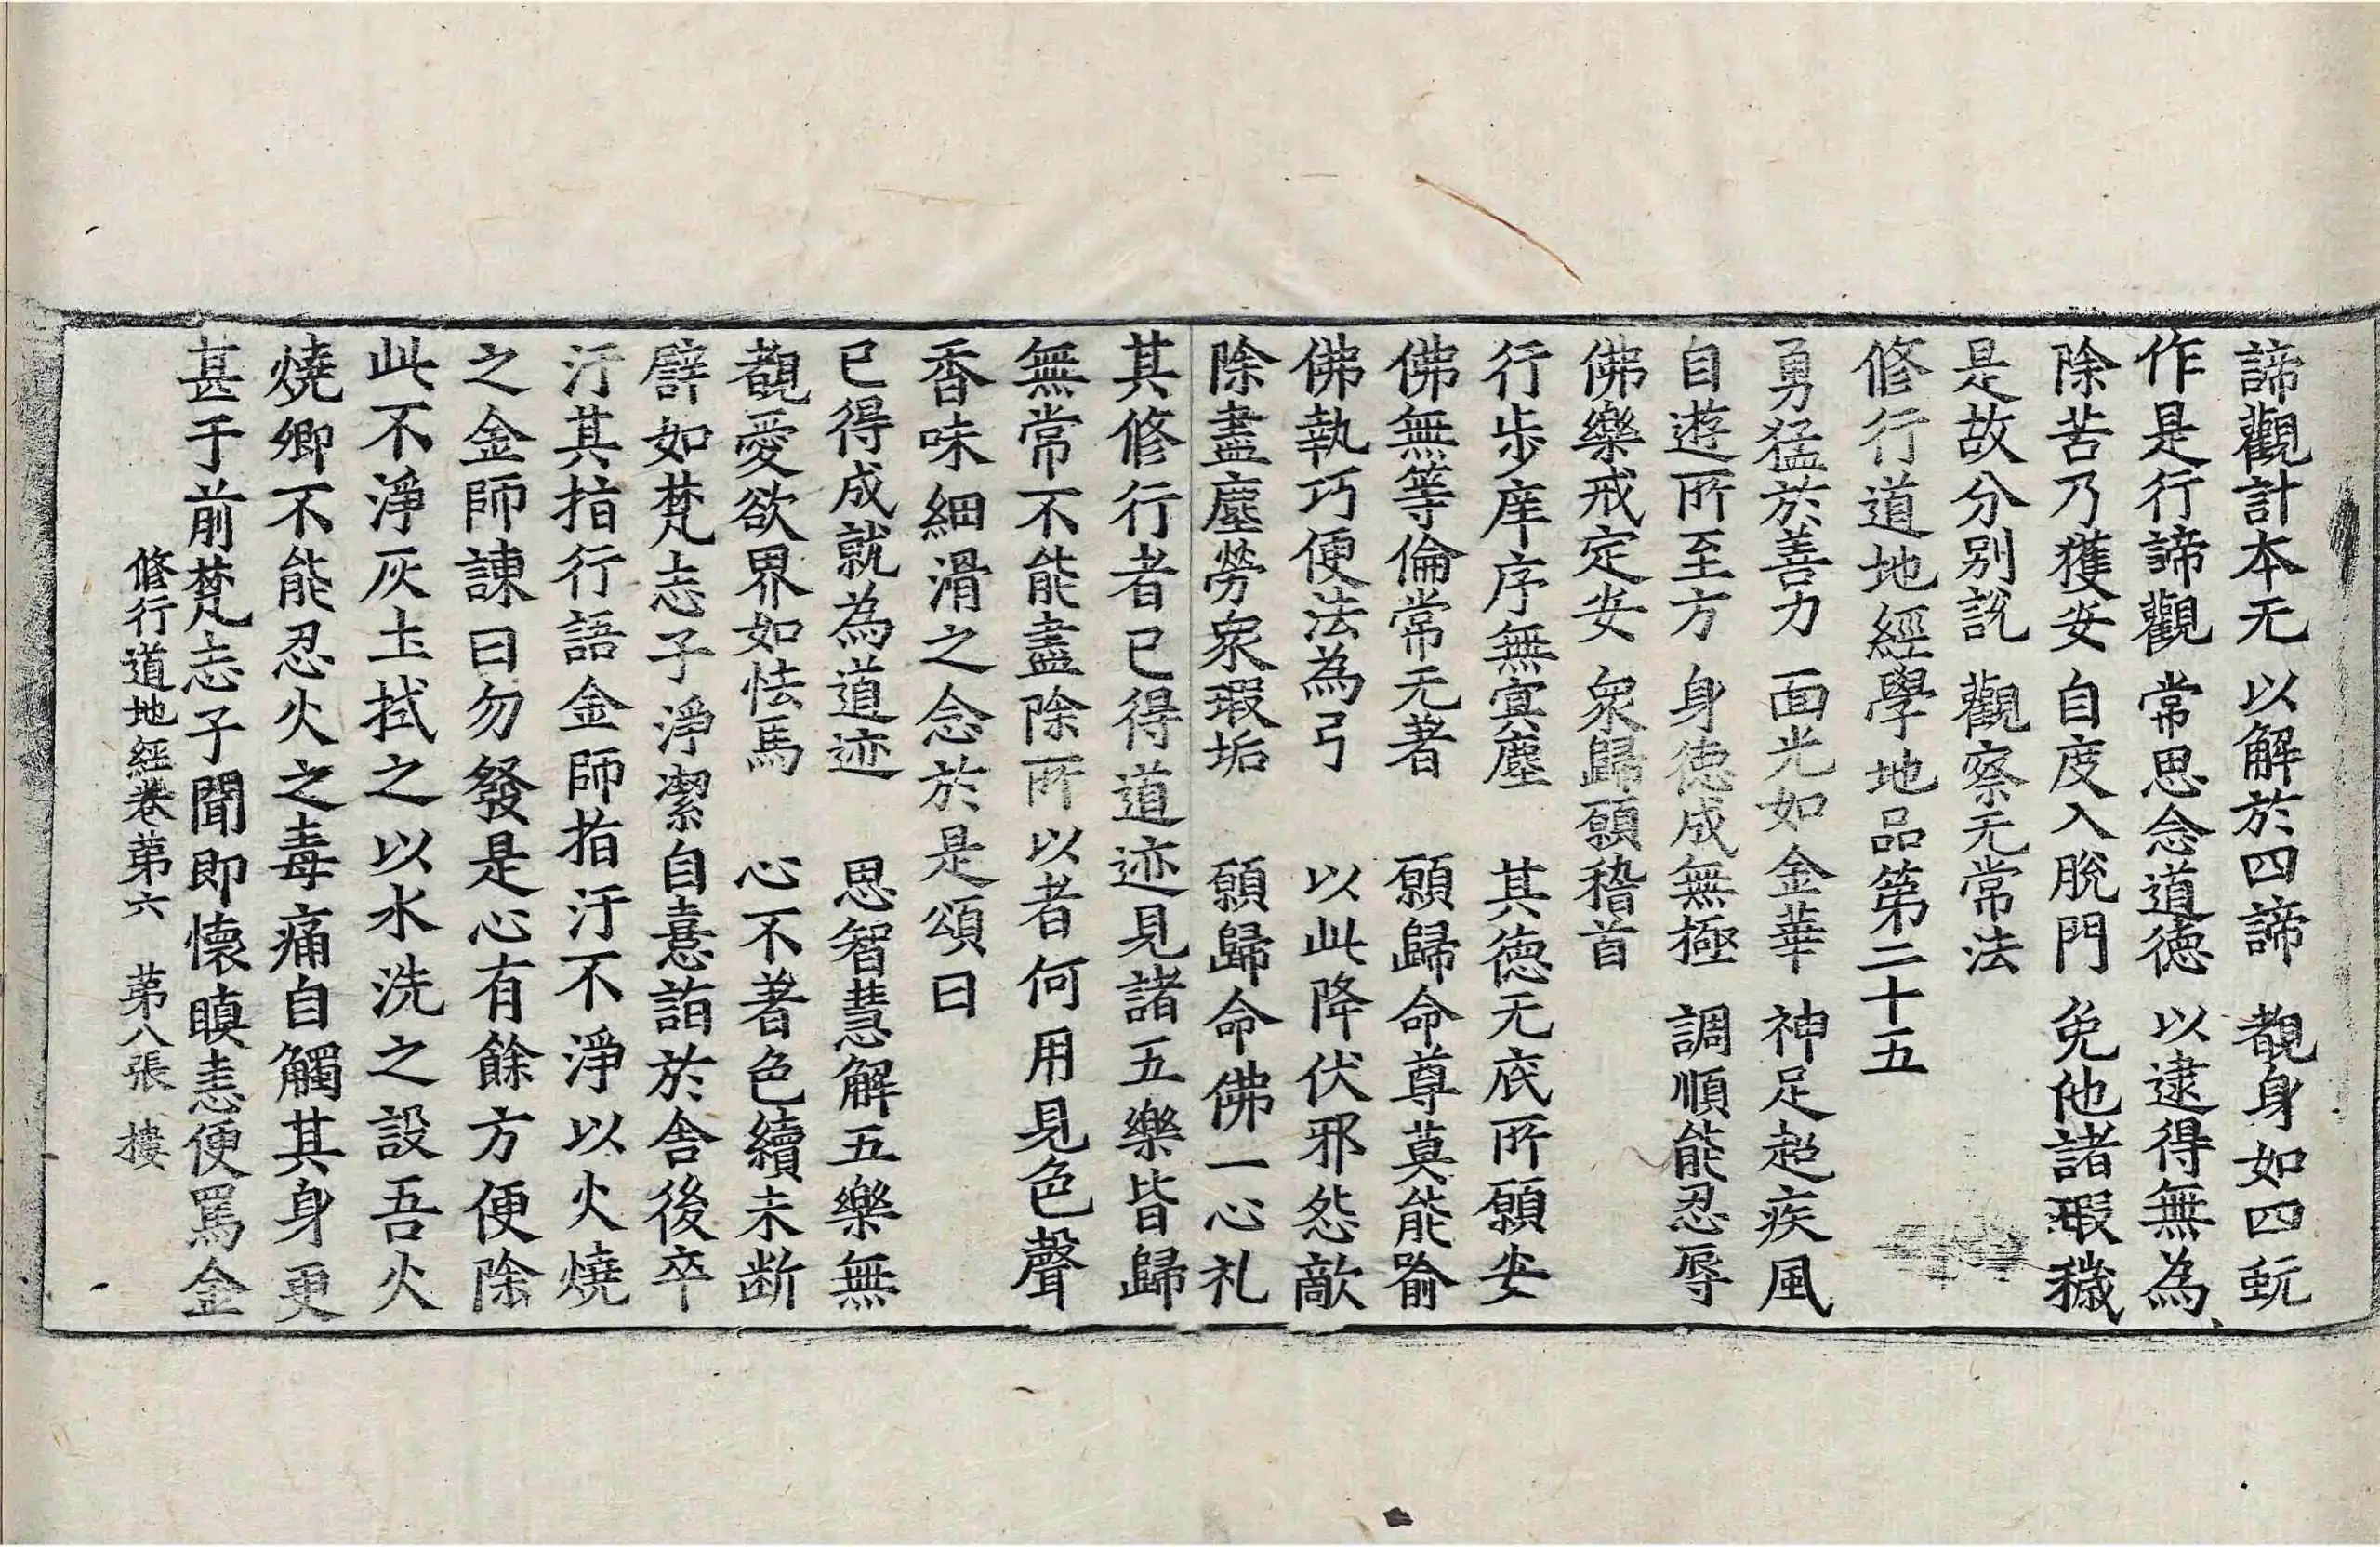 諦觀計本无 以解於四諦 覩身如四蚖
作是行諦觀 常思念道德 以逮得無為
除苦乃獲安 自度入脫門 免他諸瑕穢
是故分別說 觀察无常法
修行道地經學地品第二十五
勇猛於善力 面光如金華 神足超疾風
自遊所至方 身德成無極 調順能忍辱
佛樂戒定安 衆歸願稽首
行步庠序無寘塵 其德无底所願安
佛無等倫常无著 願歸命尊莫能踰
佛執巧便法為弓 以此降伏邪怨敵
除盡塵勞衆瑕垢 願歸命佛一心礼
其修行者已得道迹見諸五樂皆歸
無常不能盡除所以者何用見色聲
香味細滑之念於是頌曰
已得成就為道迹 思智慧解五樂無
覩愛欲界如怯馬 心不著色續未断
譬如梵志子淨潔自憙詣於舍後卒
汙其指行語金師指汙不淨以火燒
之金師諫曰勿發是心有餘方便除
此不淨灰土拭之以水洗之設吾火
燒卿不能忍火之毒痛自觸其身更
甚于前梵志子聞即懷瞋恚便罵金
修行道地經卷苐六 苐八張 摟